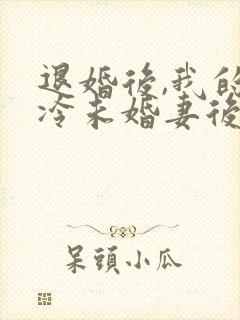 退婚後,我的
冷未婚妻後
呆頭小瓜